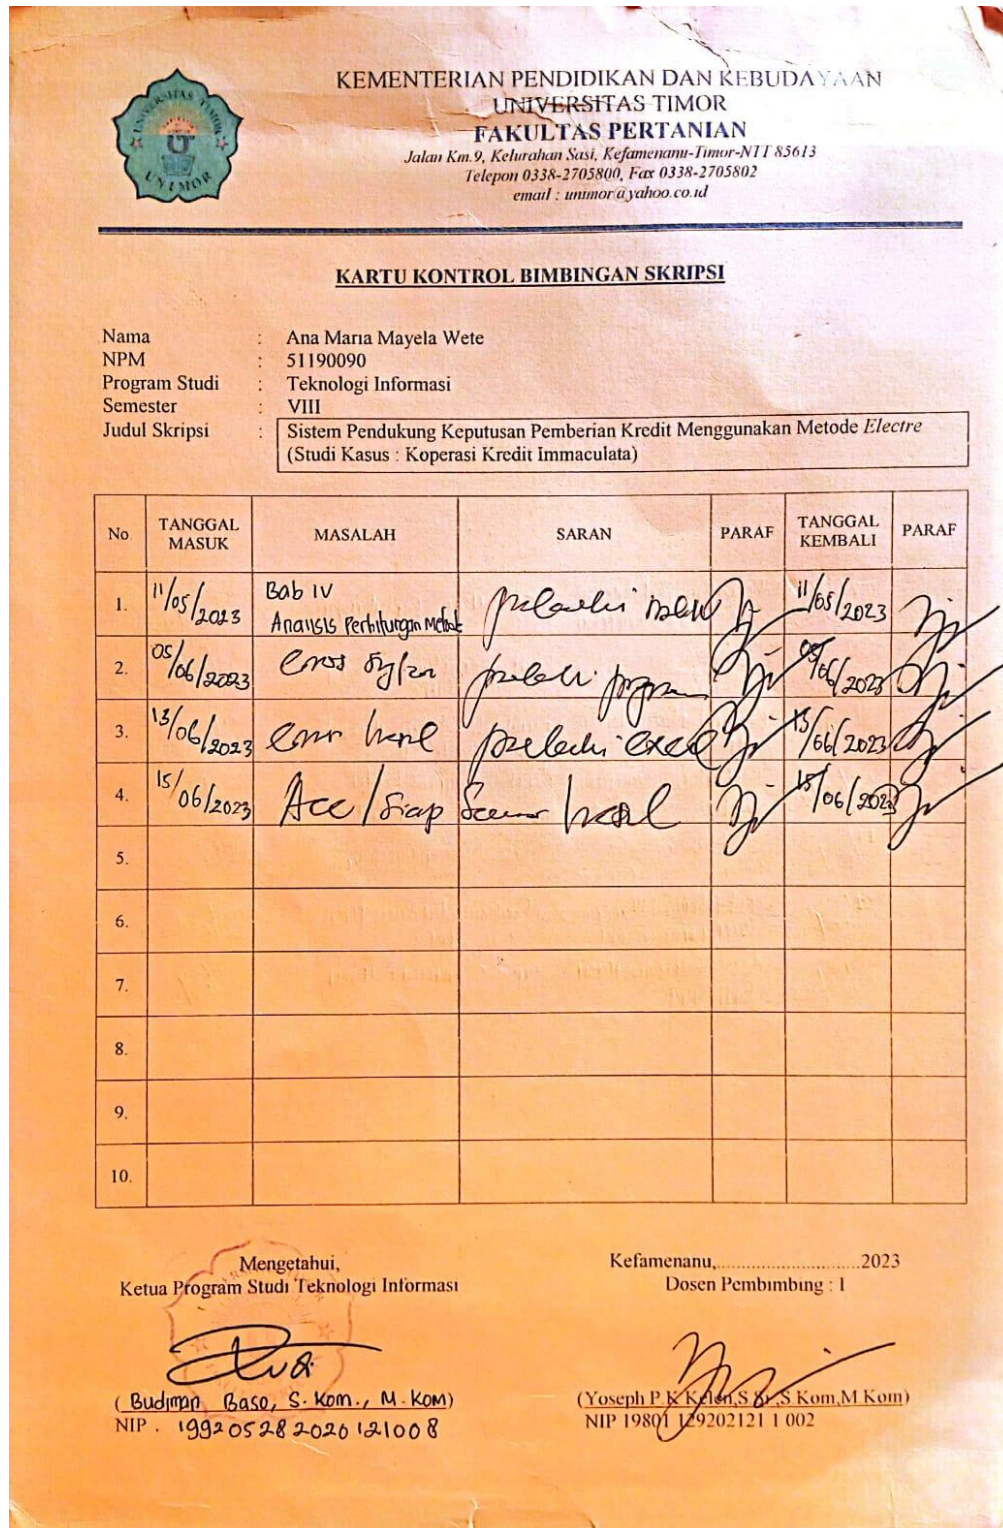 UNIVERSITAS TIMOR
UNIMOR
KEMENTERIAN PENDIDIKAN DAN KEBUDAYAAN
UNIVERSITAS TIMOR
FAKULTAS PERTANIAN
Jalan Km.9, Kelurahan Sasi, Kefamenanu-Timor-NTT 85613
Telepon 0338-2705800, Fax 0338-2705802
email : unimor@yahoo.co.id
KARTU KONTROL BIMBINGAN SKRIPSI
Nama : Ana Maria Mayela Wete
NPM : 51190090
Program Studi : Teknologi Informasi
Semester : VIII
Judul Skripsi : Sistem Pendukung Keputusan Pemberian Kredit Menggunakan Metode Electre
(Studi Kasus : Koperasi Kredit Immaculata)
No TANGGAL MASUK MASALAH SARAN PARAF TANGGAL KEMBALI PARAF
1. 11/05/2023 Bab IV 11/05/2023
Analisis Perhitungan Metode
2. 05/06/2023 05/06/2023
3. 13/06/2023 13/06/2023
4. 15/06/2023 Acc / Siap hasil 15/06/2023
5.
6.
7.
8.
9.
10.
Mengetahui,
Ketua Program Studi Teknologi Informasi
(Budiman Baso, S.Kom., M.Kom)
NIP. 199205282020121008
Kefamenanu,.............................2023
Dosen Pembimbing : I
(Yoseph P.K Kelen,S Si,S Kom,M Kom)
NIP 19801 129202121 1 002